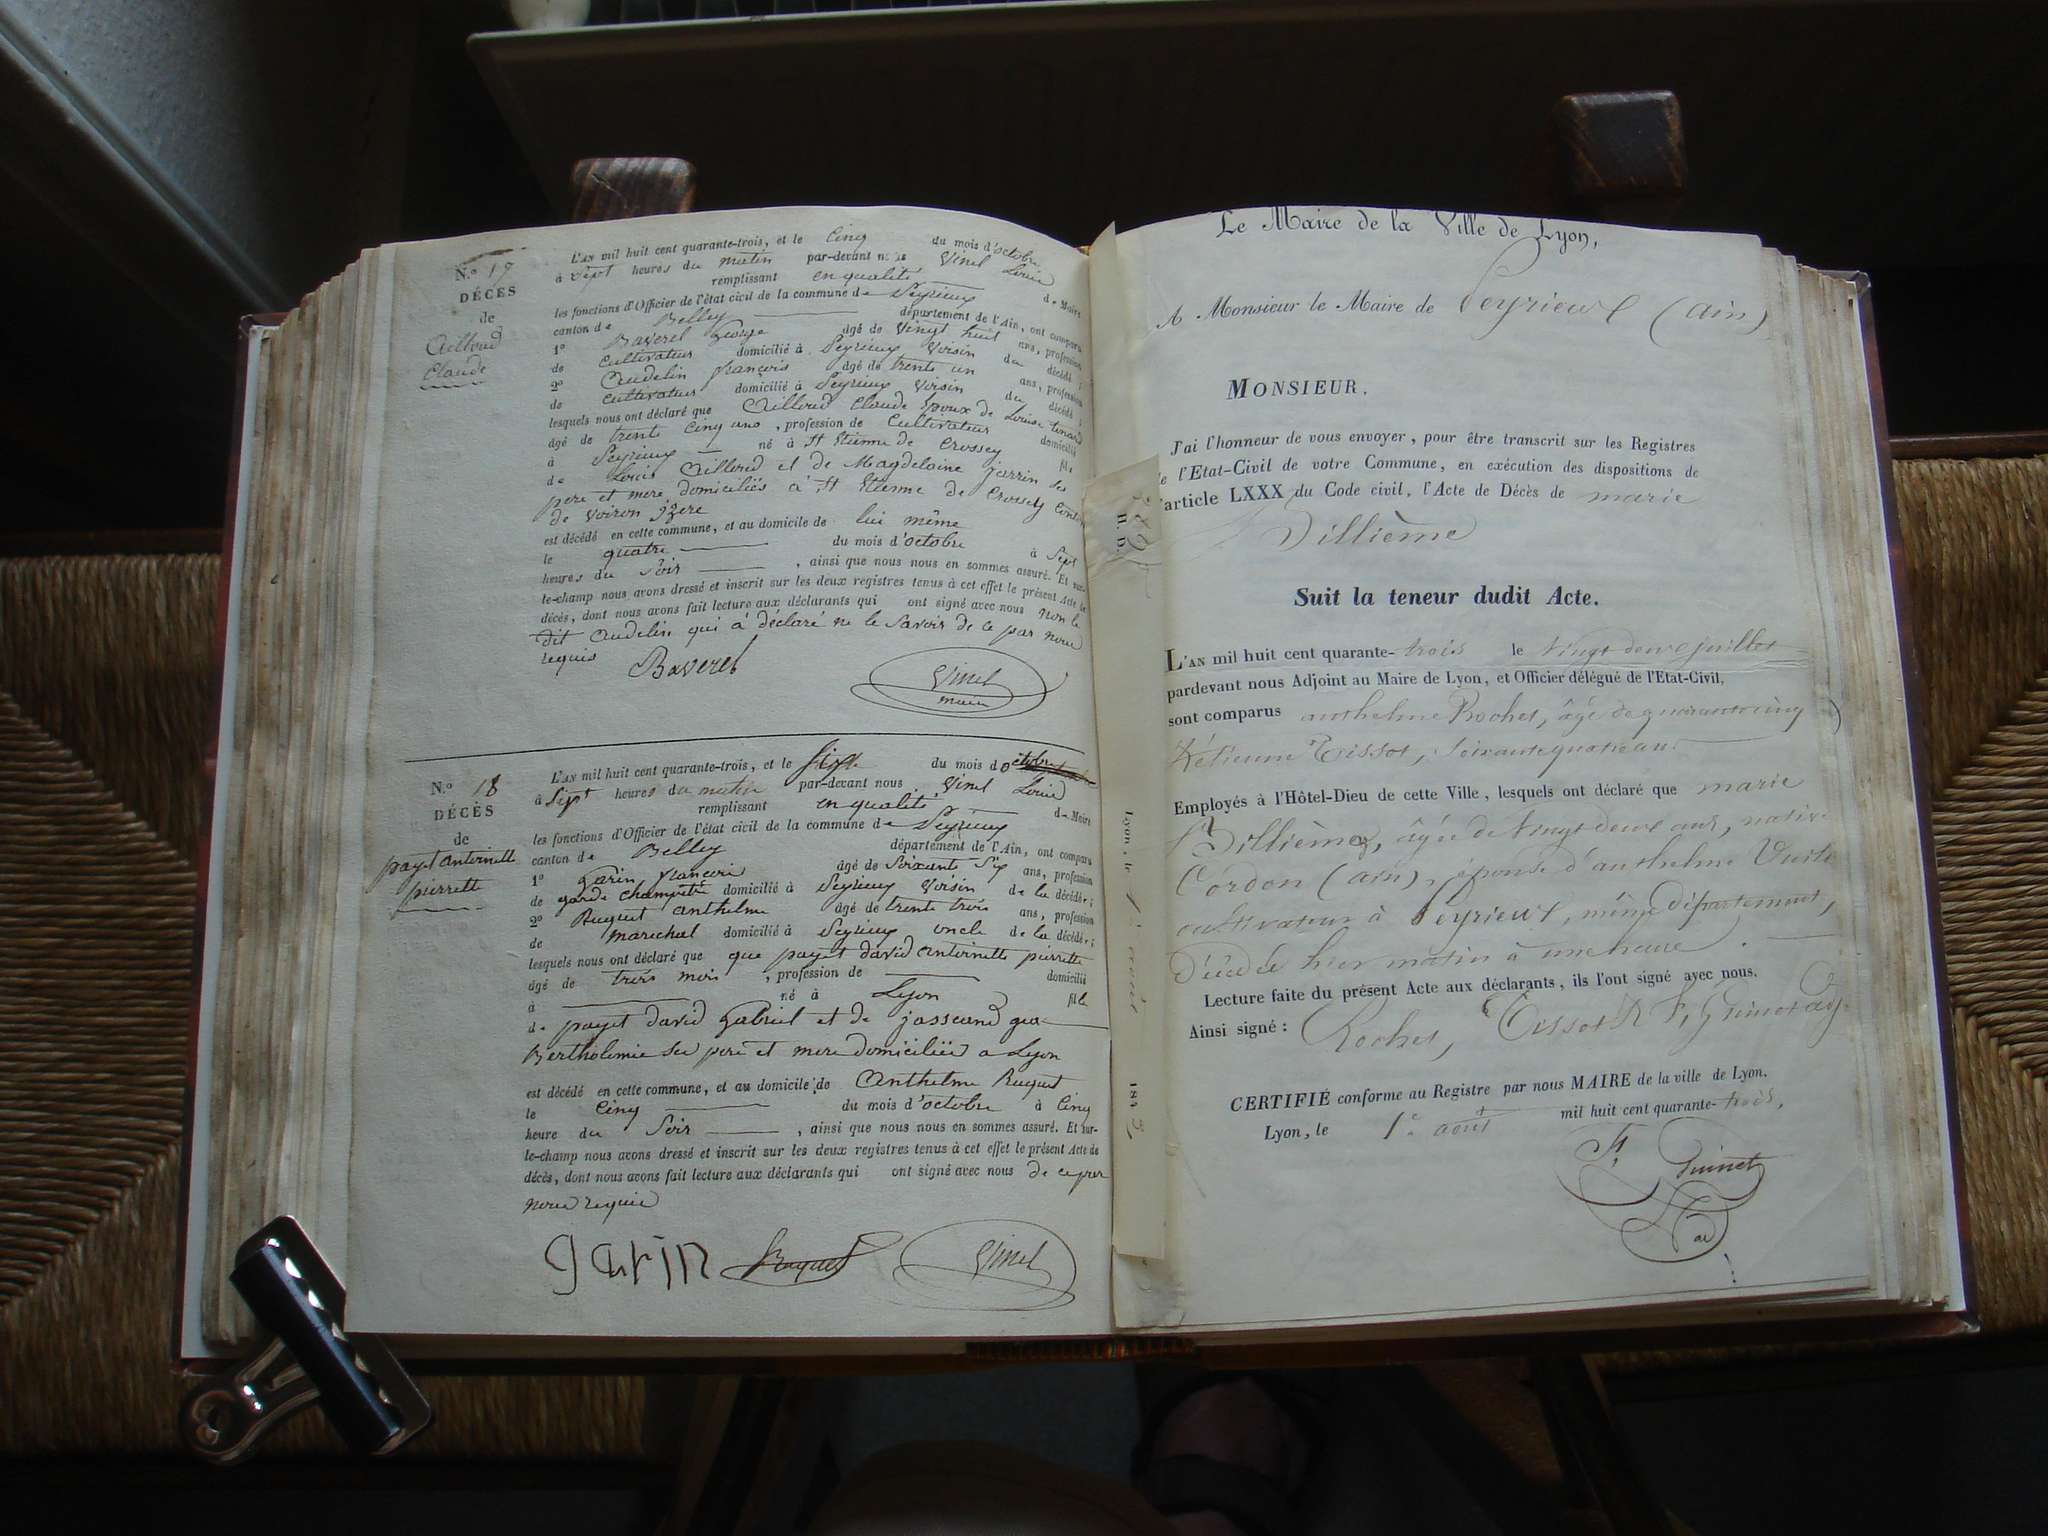 N.o 17
DÉCÈS
de
Ailloud
Claude
L'AN mil huit cent quarante-trois, et le Cinq du mois d'octobre
à Sept heures du matin par-devant nous Vinel Louis
remplissant en qualité de Maire
les fonctions d'Officier de l'état civil de la commune de Peyrieux
canton de Belley département de l'Ain, ont comparu
1o Baverel George âgé de vingt huit ans, profession
de Cultivateur domicilié à Peyrieux Voisin du décédé;
2o Audelin françois âgé de trente un ans, profession
de Cultivateur domicilié à Peyrieux Voisin du décédé;
lesquels nous ont déclaré que Ailloud Claude Epoux de Louise
âgé de trente Cinq ans, profession de Cultivateur domicilié
à Peyrieux né à St Etienne de Crossey fils
de Louis Ailloud et de Magdeloine jarrin ses
pere et mere domiciliés à St Etienne de Crossey Canton
de Voiron jzere
est décédé en cette commune, et au domicile de lui même
le quatre du mois d'octobre à Sept
heures du Soir, ainsi que nous nous en sommes assuré. Et sur-
le-champ nous avons dressé et inscrit sur les deux registres tenus à cet effet le présent Acte de
décès, dont nous avons fait lecture aux déclarants qui ont signé avec nous non le
dit Audelin qui à déclaré ne le Savoir de ce par nous
requis
Baverel Vinel
maire
N.o 18
DÉCÈS
de
payet antoinette
pierrette
L'AN mil huit cent quarante-trois, et le Six du mois d'octobre
à Sept heures du matin par-devant nous Vinel Louis
remplissant en qualité de Maire
les fonctions d'Officier de l'état civil de la commune de Peyrieux
canton de Belley département de l'Ain, ont comparu
1o Garin françois âgé de Soixante Six ans, profession
de garde champetre domicilié à Peyrieux Voisin de la décédée;
2o Ruquet anthelme âgé de trente trois ans, profession
de marechal domicilié à Peyrieux oncle de la décédée;
lesquels nous ont déclaré que payet david antoinette pierrette
âgé de trois mois, profession de domicilié
à né à Lyon fille
de payet david Gabriel et de jasseand
Bertholomie ses pere et mere domiciliés a Lyon
est décédé en cette commune, et au domicile de Anthelme Ruquet
le Cinq du mois d'octobre à Cinq
heure du Soir, ainsi que nous nous en sommes assuré. Et sur-
le-champ nous avons dressé et inscrit sur les deux registres tenus à cet effet le présent Acte de
décès, dont nous avons fait lecture aux déclarants qui ont signé avec nous de ce par
nous requis
garin Ruquet Vinel
H. D.
Lyon, le 1er août 1843
Le Maire de la Ville de Lyon,
A Monsieur le Maire de Peyrieux (ain)
MONSIEUR.
J'ai l'honneur de vous envoyer, pour être transcrit sur les Registres
de l'Etat-Civil de votre Commune, en exécution des dispositions de
l'article LXXX du Code civil, l'Acte de Décès de marie
Dillième
Suit la teneur dudit Acte.
L'AN mil huit cent quarante-trois le vingt deux juillet
pardevant nous Adjoint au Maire de Lyon, et Officier délégué de l'Etat-Civil,
sont comparus anthelme Rochet, âgé de quarante cinq
& étienne Tissot, soixante quatre ans
Employés à l'Hôtel-Dieu de cette Ville, lesquels ont déclaré que marie
Dillième, âgée de vingt deux ans, native
Cordon (ain), épouse d'anthelme
cultivateur à Peyrieux, même département,
décédée hier matin à une heure
Lecture faite du présent Acte aux déclarants, ils l'ont signé avec nous.
Ainsi signé: Rochet, Tissot & F. Guimet adj.
CERTIFIÉ conforme au Registre par nous MAIRE de la ville de Lyon.
Lyon, le 1er août mil huit cent quarante-trois.
Guimet